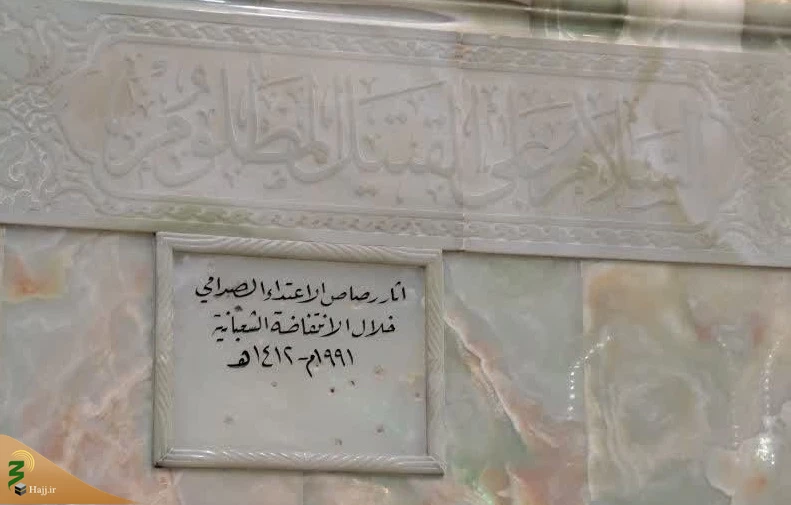 السلام على القتيل المظلوم
اثار رصاص الاعتداء الصدامي
خلال الانتفاضة الشعبانية
١٩٩١م-١٤١٢ه
Hajj.ir